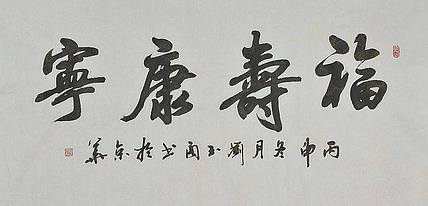 福壽康寧
丙申冬月劉玉书於京華